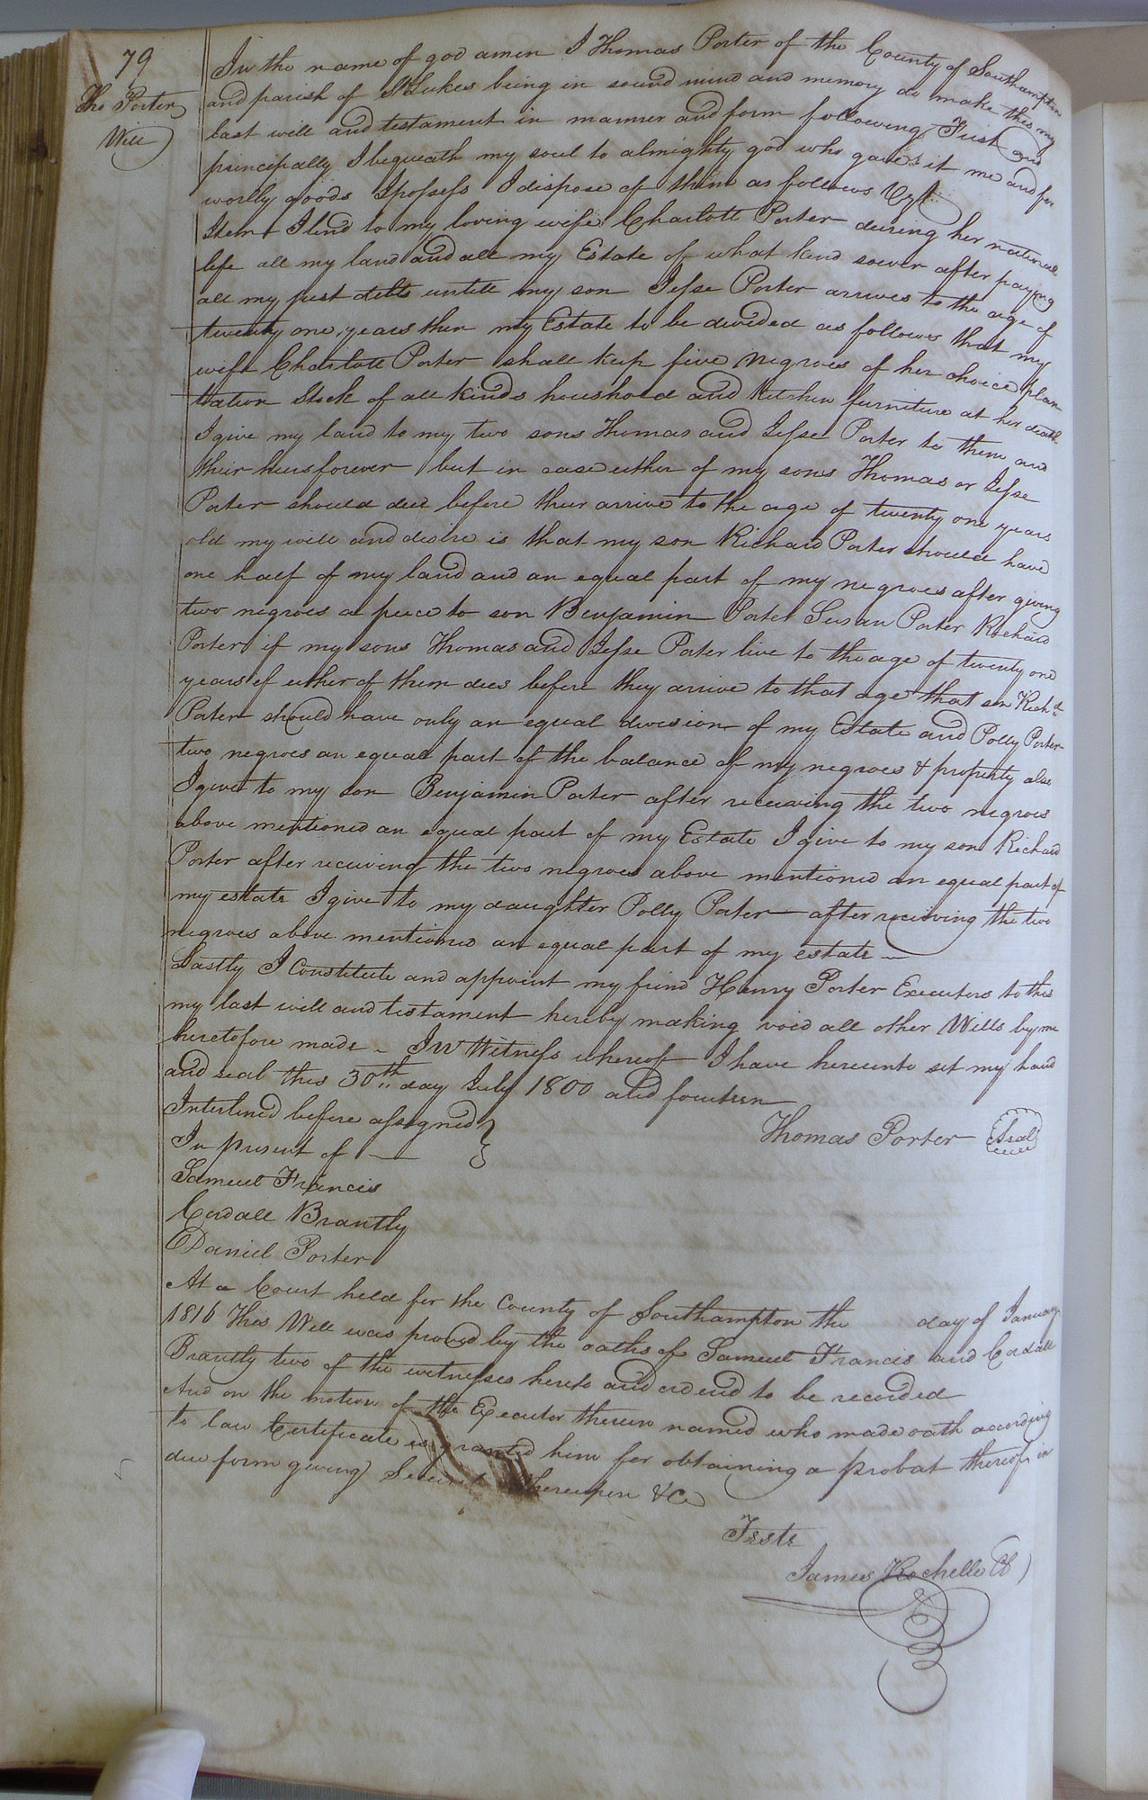 79
Tho Porter
Will
In the name of god amen I Thomas Porter of the County of Southampton
and parish of St Lukes being in sound mind and memory do make this my
last will and testament in manner and form following First and
principally I bequeath my soul to almighty god who gave it me and for
worlly goods I possess I dispose of them as follows Vizt
Item I lend to my loving wife Charlott Porter during her natural
life all my land and all my Estate of what kind soever after paying
all my just debts untill my son Jesse Porter arrives to the age of
twenty one years then my Estate to be divided as follows that my
wife Charlott Porter shall keep five negroes of her choice plan
tation Stock of all kinds houshold and kitchen furniture at her death
I give my land to my two sons Thomas and Jesse Porter to them and
their heirs forever but in case either of my sons Thomas or Jesse
Porter should die before their arrive to the age of twenty one years
old my will and disire is that my son Richard Porter should have
one half of my land and an equal part of my negroes after giving
two negroes a peice to son Benjamin Porter Susan Porter Richard
Porter if my sons Thomas and Jesse Porter live to the age of twenty one
years if either of them dies before they arrive to that age that son Richd
Porter should have only an equal division of my Estate and Polly Porter
two negroes an equal part of the balance of my negroes & property also
I give to my son Benjamin Porter after receiving the two negroes
above mentioned an equal part of my Estate I give to my son Richard
Porter after receiving the two negroes above mentioned an equal part of
my estate I give to my daughter Polly Porter after reciving the two
negroes above mentioned an equal part of my estate
Lastly I Constitute and appoint my frind Henry Porter Executors to this
my last will and testament hereby making void all other Wills by me
heretofore made - In Witness whereof I have hereunto set my hand
and seal this 30th day July 1800 and fourteen
Interlined before assigned
Thomas Porter Seal
In present of
Samuel Francis
Cordall Brantly
Daniel Porter
At a Court held for the County of Southampton the day of January
1816 This Will was proved by the oaths of Samuel Francis and Cordall
Brantly two of the witnesses hereto and ordend to be recorded
And on the motion of the Executor therein named who made oath according
to law Certificate is granted him for obtaining a probat thereof in
due form giving Security thereupon &c
Teste
James Rochelle Cl